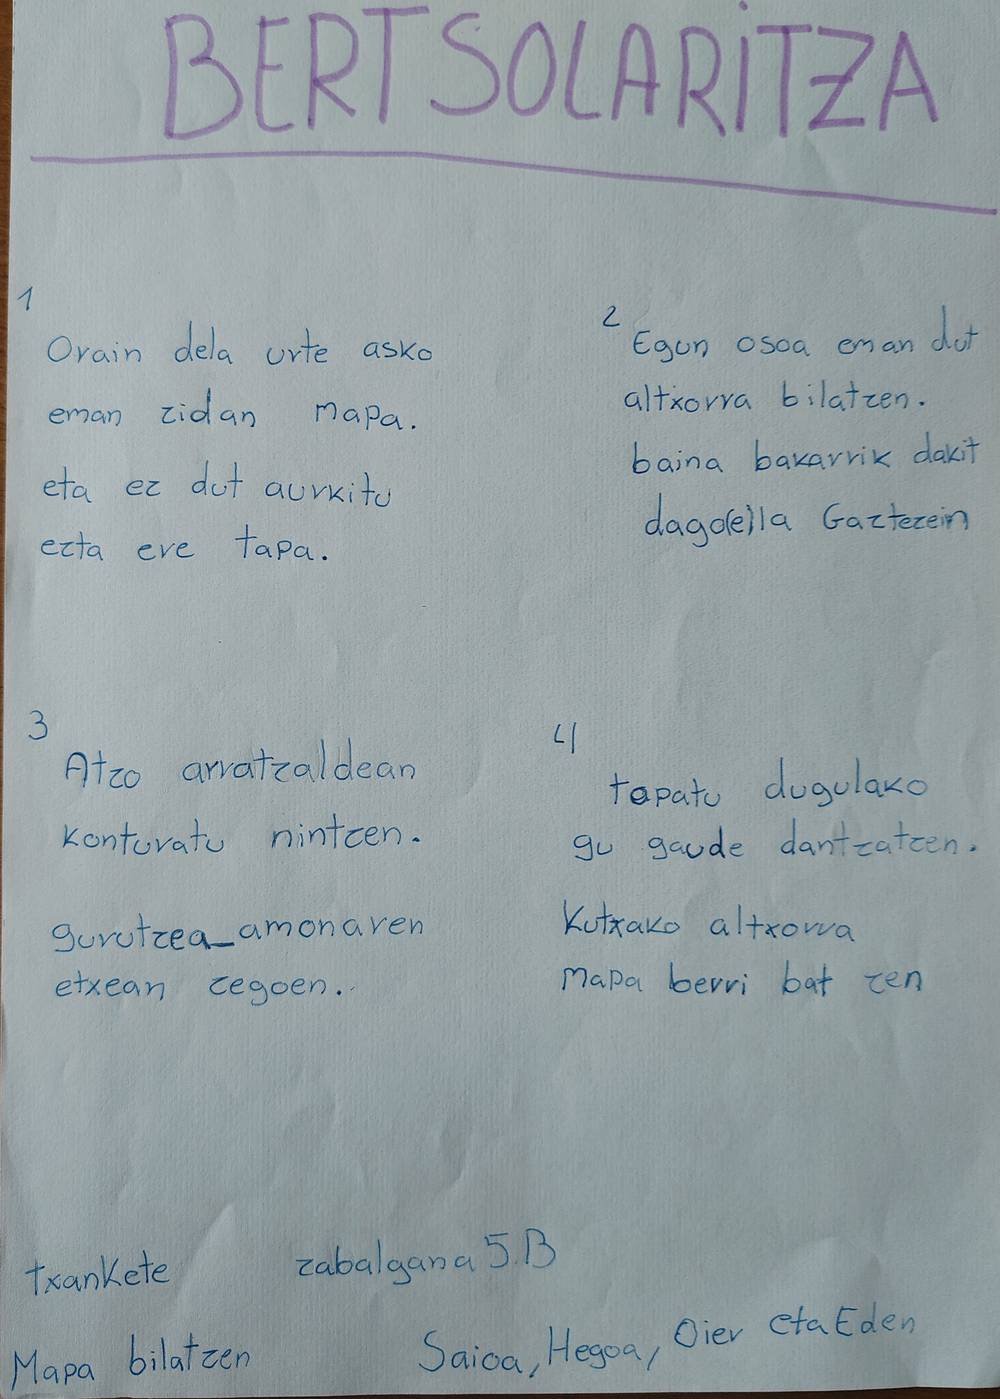 BERTSOLARITZA
1
Orain dela urte asko
eman zidan mapa.
eta ez dut aurkitu
ezta ere tapa.
2
Egun osoa eman dut
altxorra bilatzen.
baina bakarrik dakit
dago(e)lla Gaztezein
3
Atzo arratzaldean
konturatu nintzen.
gurutzea_amonaren
etxean zegoen.
4
topatu dugulako
gu gaude dantzatzen.
Kutxako altxorra
mapa berri bat zen
txankete
zabalgana 5.B
Mapa bilatzen
Saioa, Hegoa, Oier eta Eden